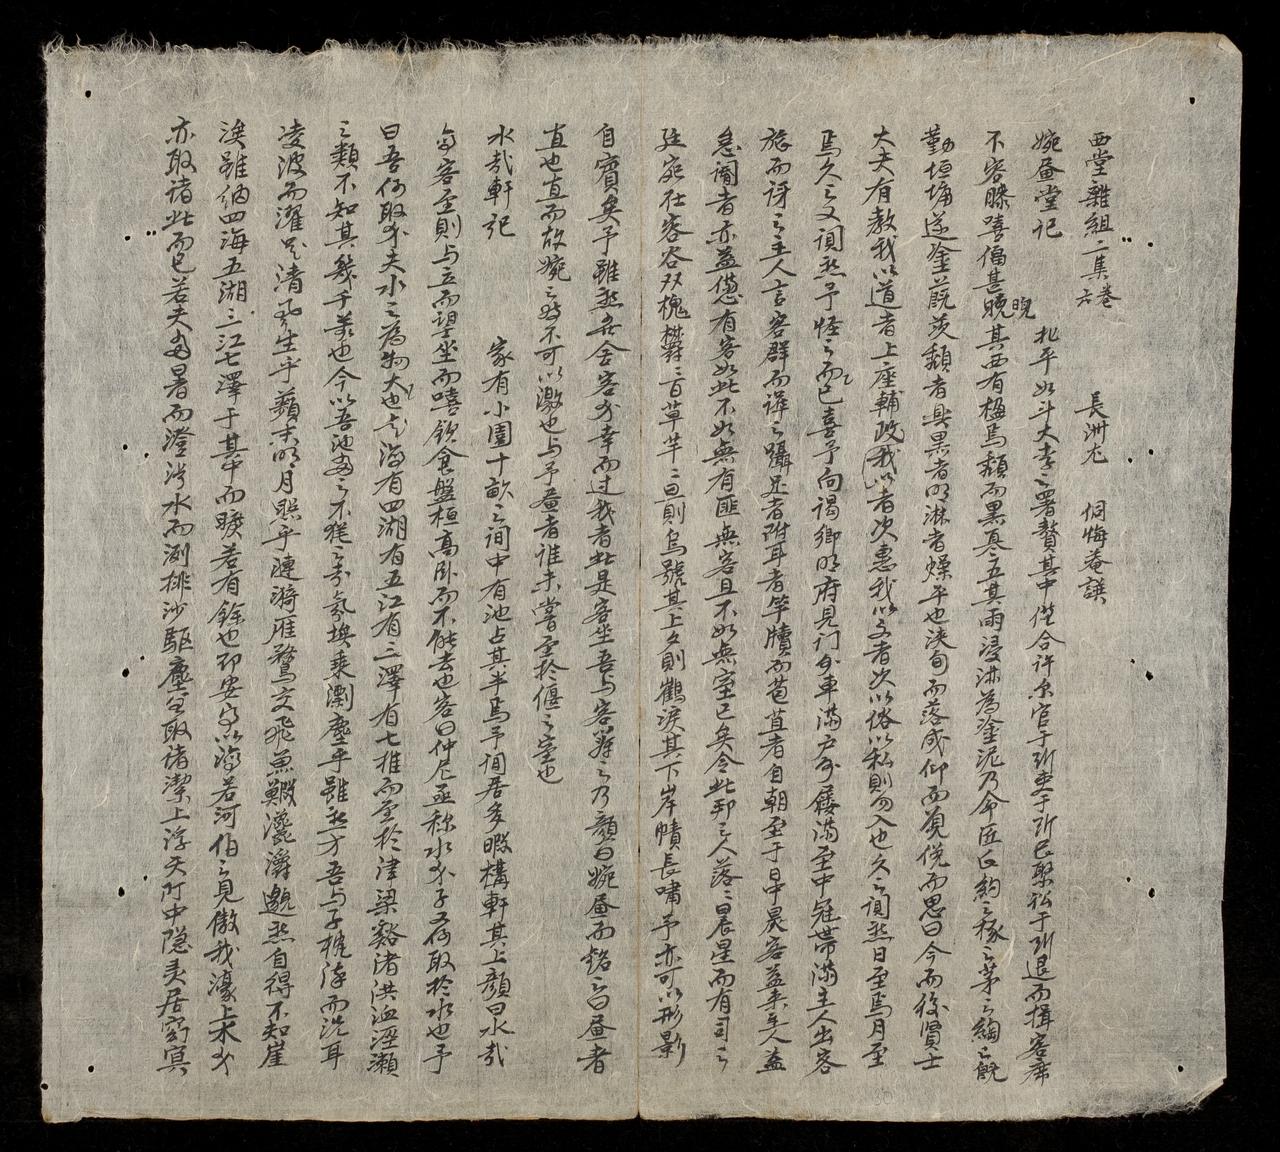 西堂雜組二集卷六 長洲尤 侗悔菴譔
婉晝堂記 北平如斗大李之署贅其中僅合許泉官于斯吏于斯已繫私于斯退而揖客席
不容膝嘻偪甚晚晛其西有楹焉頽而黑寡之五其雨浸淋為塗泥乃命匠氏約之椓之茅之綯之旣
勤垣墉遂塗旣茨頽者興黑者明淋者燥平也浹旬而落成仰而莧俛而思曰今而後賢士
大夫有教我以道者上座輔政我以者次惠我以文者次以俗以私則勿入也久之闃然日至焉月至
焉久之又闃然予怪之而已喜予向謁鄉明府見门外車滿戶外屨滿至中冠帶滿主人出客
旅而訝之主人言客群而譁之躡足者附耳者竿牘而苞苴者自朝至于日中昃客益来主人益
怠謁者亦益憊有客如此不如無有匪無客且不如無室已矣今此邦之人落落晨星而有司之
廷宛在容容双槐欝欝百草芊芊旦則烏號其上夕則鶴淚其下岸幘長嘯予亦可以形影
自賓矣予雖然無舍客外幸而过我者此是客坐吾与客辟之乃顏曰婉晝而銘之曰晝者
直也直而故婉之時不可以激也与予晝者谁未嘗至於偃之室也
水哉軒記 家有小園十畝之间中有池占其半焉予间居多暇構軒其上顏曰水哉
每客至則与立而望坐而嘻飲食盤桓高卧而不能去也客曰仲尼亟称水水子又何取於水也予
曰吾何取水夫水之為物大也已海有四湖有五江有三澤有七推而至於津梁谿渚洪沍溼瀨
之類不知其幾千萬也今以吾池当之不猶之芥氣埃乘瀏塵乎雖然方吾与子枕流而洗耳
凌波而濯足清風生乎蘋末明月照乎漣漪雁鶩交飛魚鰕瀺灂邈然自得不知崖
涘雖納四海五湖三江七澤于其中而曠若有餘也卽安可以海若河伯之見傲我濠上水水
亦取诸此而已若夫当暑而澄凝水而冽排沙驅塵盖取诸潔上浮天际中隐灵居窈冥